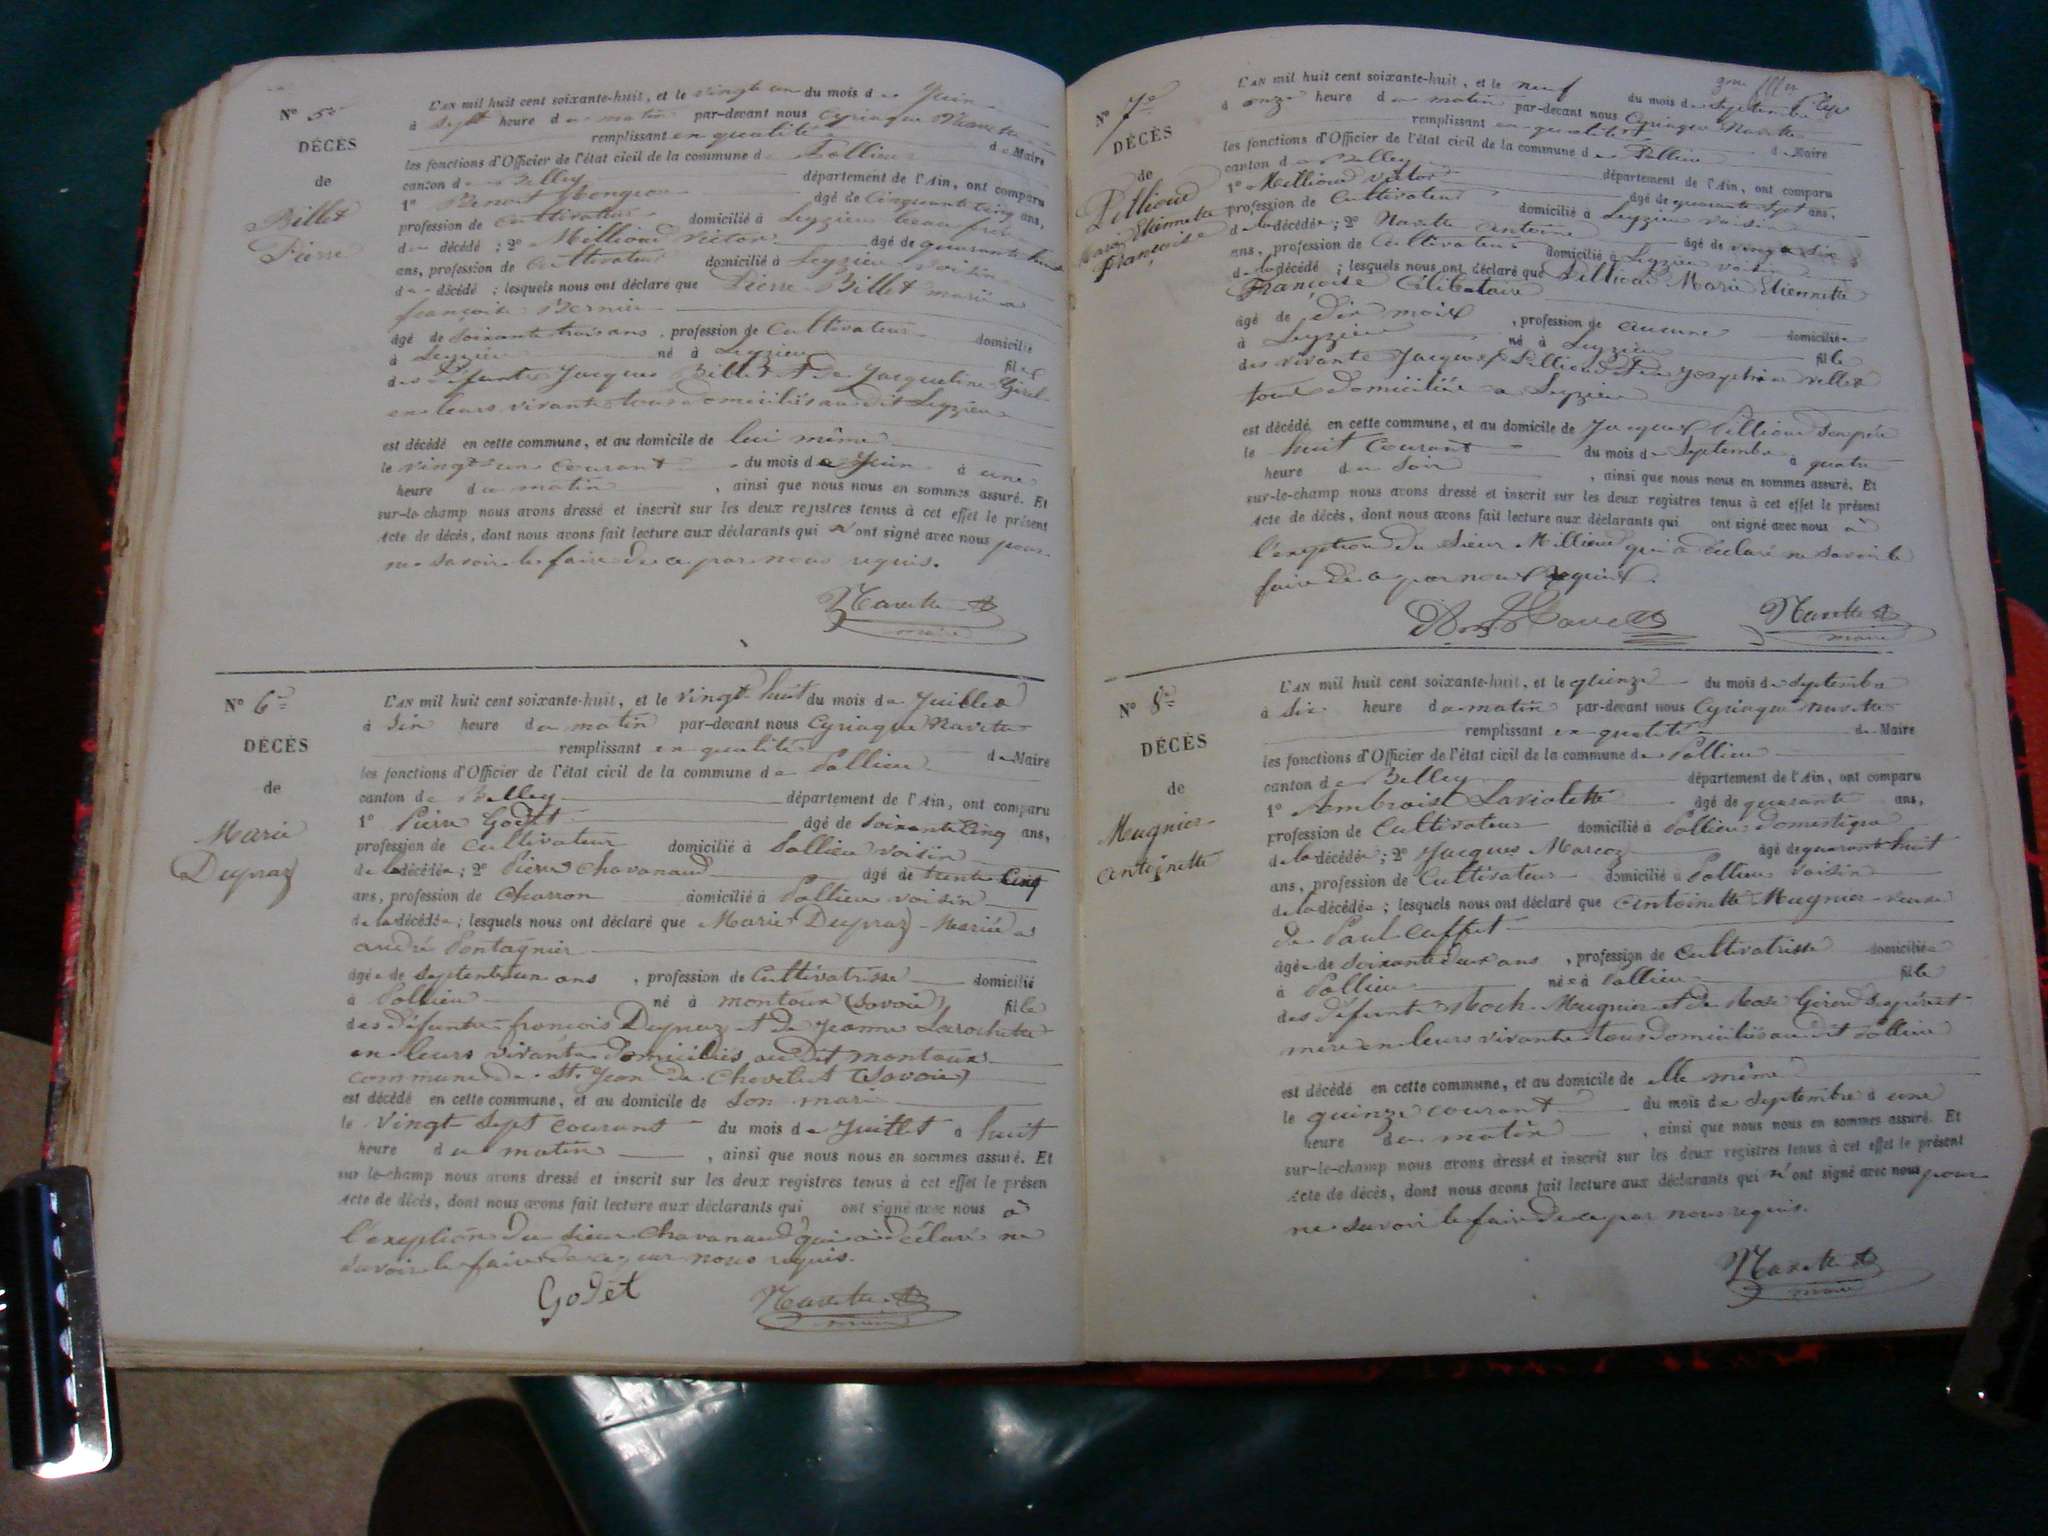 N° 5e
DÉCÈS
de
Billet
Pierre
L'AN mil huit cent soixante-huit, et le vingt un du mois de Juin
à sept heure du matin par-devant nous Cyriaque Navette
remplissant en qualité de Maire
les fonctions d'Officier de l'état civil de la commune de Pollieu
canton de Belley département de l'Ain, ont comparu
1° Benoit Mongeon âgé de Cinquante Cinq ans,
profession de Cultivateur domicilié à Leyzieu beau frère
du décédé ; 2° Millioud Victor âgé de quarante huit
ans, profession de Cultivateur domicilié à Leyzieu voisin
du décédé ; lesquels nous ont déclaré que Pierre Billet marié a
françoise Bernier
âgé de Soixante trois ans, profession de Cultivateur domicilié
à Leyzieu né à Leyzieu fils
des défunts Jacques Billet et de Jacqueline
en leurs vivants tous domiciliés au dit Leyzieu
est décédé en cette commune, et au domicile de lui même
le vingt un courant du mois de Juin à une
heure du matin, ainsi que nous nous en sommes assuré. Et
sur-le-champ nous avons dressé et inscrit sur les deux registres tenus à cet effet le présent
Acte de décès, dont nous avons fait lecture aux déclarants qui n'ont signé avec nous pour
ne savoir le faire de ce par nous requis.
Navette
maire
N° 6e
DÉCÈS
de
Marie
Dupraz
L'AN mil huit cent soixante-huit, et le vingt huit du mois de Juillet
à Six heure du matin par-devant nous Cyriaque Navette
remplissant en qualité de Maire
les fonctions d'Officier de l'état civil de la commune de Pollieu
canton de Belley département de l'Ain, ont comparu
1° Pierre Godet âgé de Soixante Cinq ans,
profession de Cultivateur domicilié à Pollieu voisin
de la décédée ; 2° Pierre Chavanaud âgé de trente Cinq
ans, profession de Charron domicilié à Pollieu voisin
de la décédée ; lesquels nous ont déclaré que Marie Dupraz Mariée a
andré Pontagnier
âgée de Septente un ans, profession de Cultivatrisse domicilié
à Pollieu né à montoux (Savoie) fille
des défunts françois Dupraz et de Jeanne Larochette
en leurs vivants domiciliés au dit montoux
commune de St Jean de Chevelut (Savoie)
est décédé en cette commune, et au domicile de Son mari
le Vingt Sept courant du mois de Juillet à huit
heure du matin, ainsi que nous nous en sommes assuré. Et
sur le-champ nous avons dressé et inscrit sur les deux registres tenus à cet effet le présen
Acte de décès, dont nous avons fait lecture aux déclarants qui ont signé avec nous à
l'exeption du sieur Chavanaud qui a déclaré ne
savoir le faire de ce par nous requis.
Godet
Navette
maire
N° 7e
DÉCÈS
de
Pellioud
Marie Etiennette
Françoise
L'AN mil huit cent soixante-huit, et le neuf du mois de Septembre
à onze heure du matin par-devant nous Cyriaque Navette
remplissant en qualité de Maire
les fonctions d'Officier de l'état civil de la commune de Pollieu
canton de Belley département de l'Ain, ont comparu
1° Millioud Victor âgé de quarante Sept ans,
profession de Cultivateur domicilié à Leyzieu voisin
de la décédée ; 2° Navette Antoine âgé de vingt Six
ans, profession de Cultivateur domicilié à Leyzieu voisin
de la décédé ; lesquels nous ont déclaré que Pellioud Marie Etiennette
Françoise Célibataire
âgé de dix mois, profession de aucune domiciliée
à Leyzieu né à Leyzieu fille
des vivants Jacques Pellioud et de Josephine Villet
tous domiciliés a Leyzieu
est décédé en cette commune, et au domicile de Jacques Pellioud son père
le huit courant du mois de Septembre à quatre
heure du Soir, ainsi que nous nous en sommes assuré. Et
sur-le-champ nous avons dressé et inscrit sur les deux registres tenus à cet effet le présent
Acte de décès, dont nous avons fait lecture aux déclarants qui ont signé avec nous à
l'exeption du Sieur Millioud qui a déclaré ne savoir le
faire de ce par nous requis.
Navette
maire
N° 8e
DÉCÈS
de
Meugnier
Antoinette
L'AN mil huit cent soixante-huit, et le quinze du mois de Septembre
à Six heure du matin par-devant nous Cyriaque Navette
remplissant en qualité de Maire
les fonctions d'Officier de l'état civil de la commune de Pollieu
canton de Belley département de l'Ain, ont comparu
1° Ambroise Laviolette âgé de quarante ans,
profession de Cultivateur domicilié à Pollieu domestique
de la décédée ; 2° Jacques Marcoz âgé de quarante huit
ans, profession de Cultivateur domicilié à Pollieu voisin
de la décédée ; lesquels nous ont déclaré que Antoinette Mugnier veuve
de Paul Caffet
âgée de Soixante deux ans, profession de Cultivatrisse domiciliée
à Pollieu née à Pollieu fille
des défunts Roch Meugnier et de Rose Giroud Ses père et
mère en leurs vivants tous domiciliés au dit Pollieu
est décédé en cette commune, et au domicile de elle même
le quinze courant du mois de Septembre à une
heure du matin, ainsi que nous nous en sommes assuré. Et
sur-le-champ nous avons dressé et inscrit sur les deux registres tenus à cet effet le présent
Acte de décès, dont nous avons fait lecture aux déclarants qui n'ont signé avec nous pour
ne savoir le faire de ce par nous requis.
Navette
maire